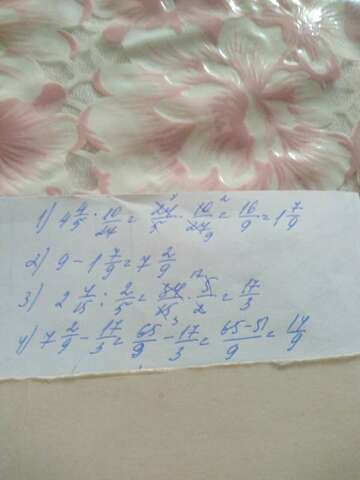 1) 4 4/5 · 10/27 = 24/5 · 10/27 = 16/9 = 1 7/9
2) 9 - 1 7/9 = 7 2/9
3) 2 4/15 : 2/5 = 34/15 · 5/2 = 17/3
4) 7 2/9 - 17/3 = 65/9 - 17/3 = 65-51/9 = 14/9